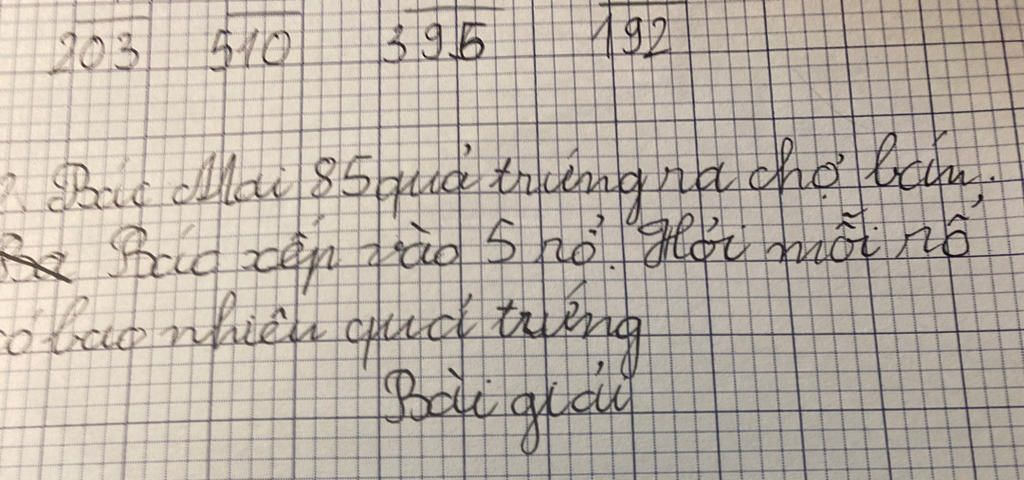 203 510 395 192
2. Bác Mai 85 quả trứng ra chợ bán.
Bác xếp vào 5 rổ. Hỏi mỗi rổ
ó bao nhiêu quả trứng
Bài giải